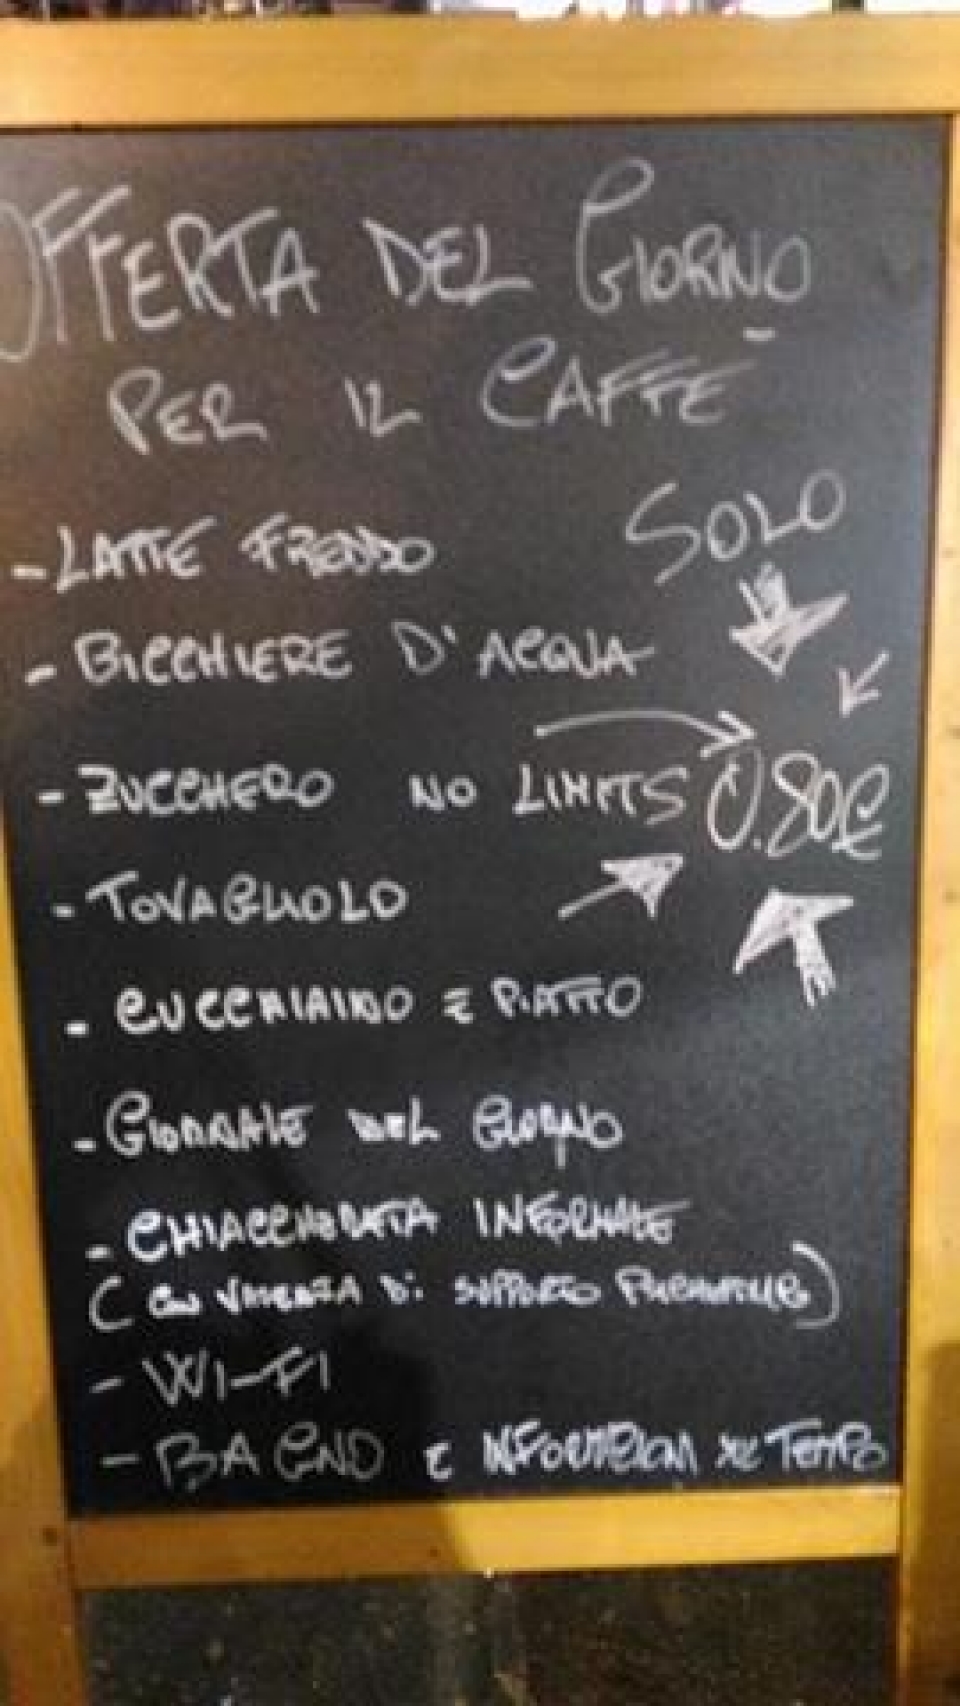 OFFERTA DEL GIORNO
PER IL CAFFE
SOLO
- LATTE FREDDO
- BICCHIERE D'ACQUA
- ZUCCHERO NO LIMITS 0.80€
- TOVAGLIOLO
- CUCCHIAINO E PIATTO
- GIORNALE DEL GIORNO
- CHIACCHIERATA INFORMALE
(CON VALENZA DI SUPPORTO
- WI-FI
- BAGNO E INFORMAZIONI